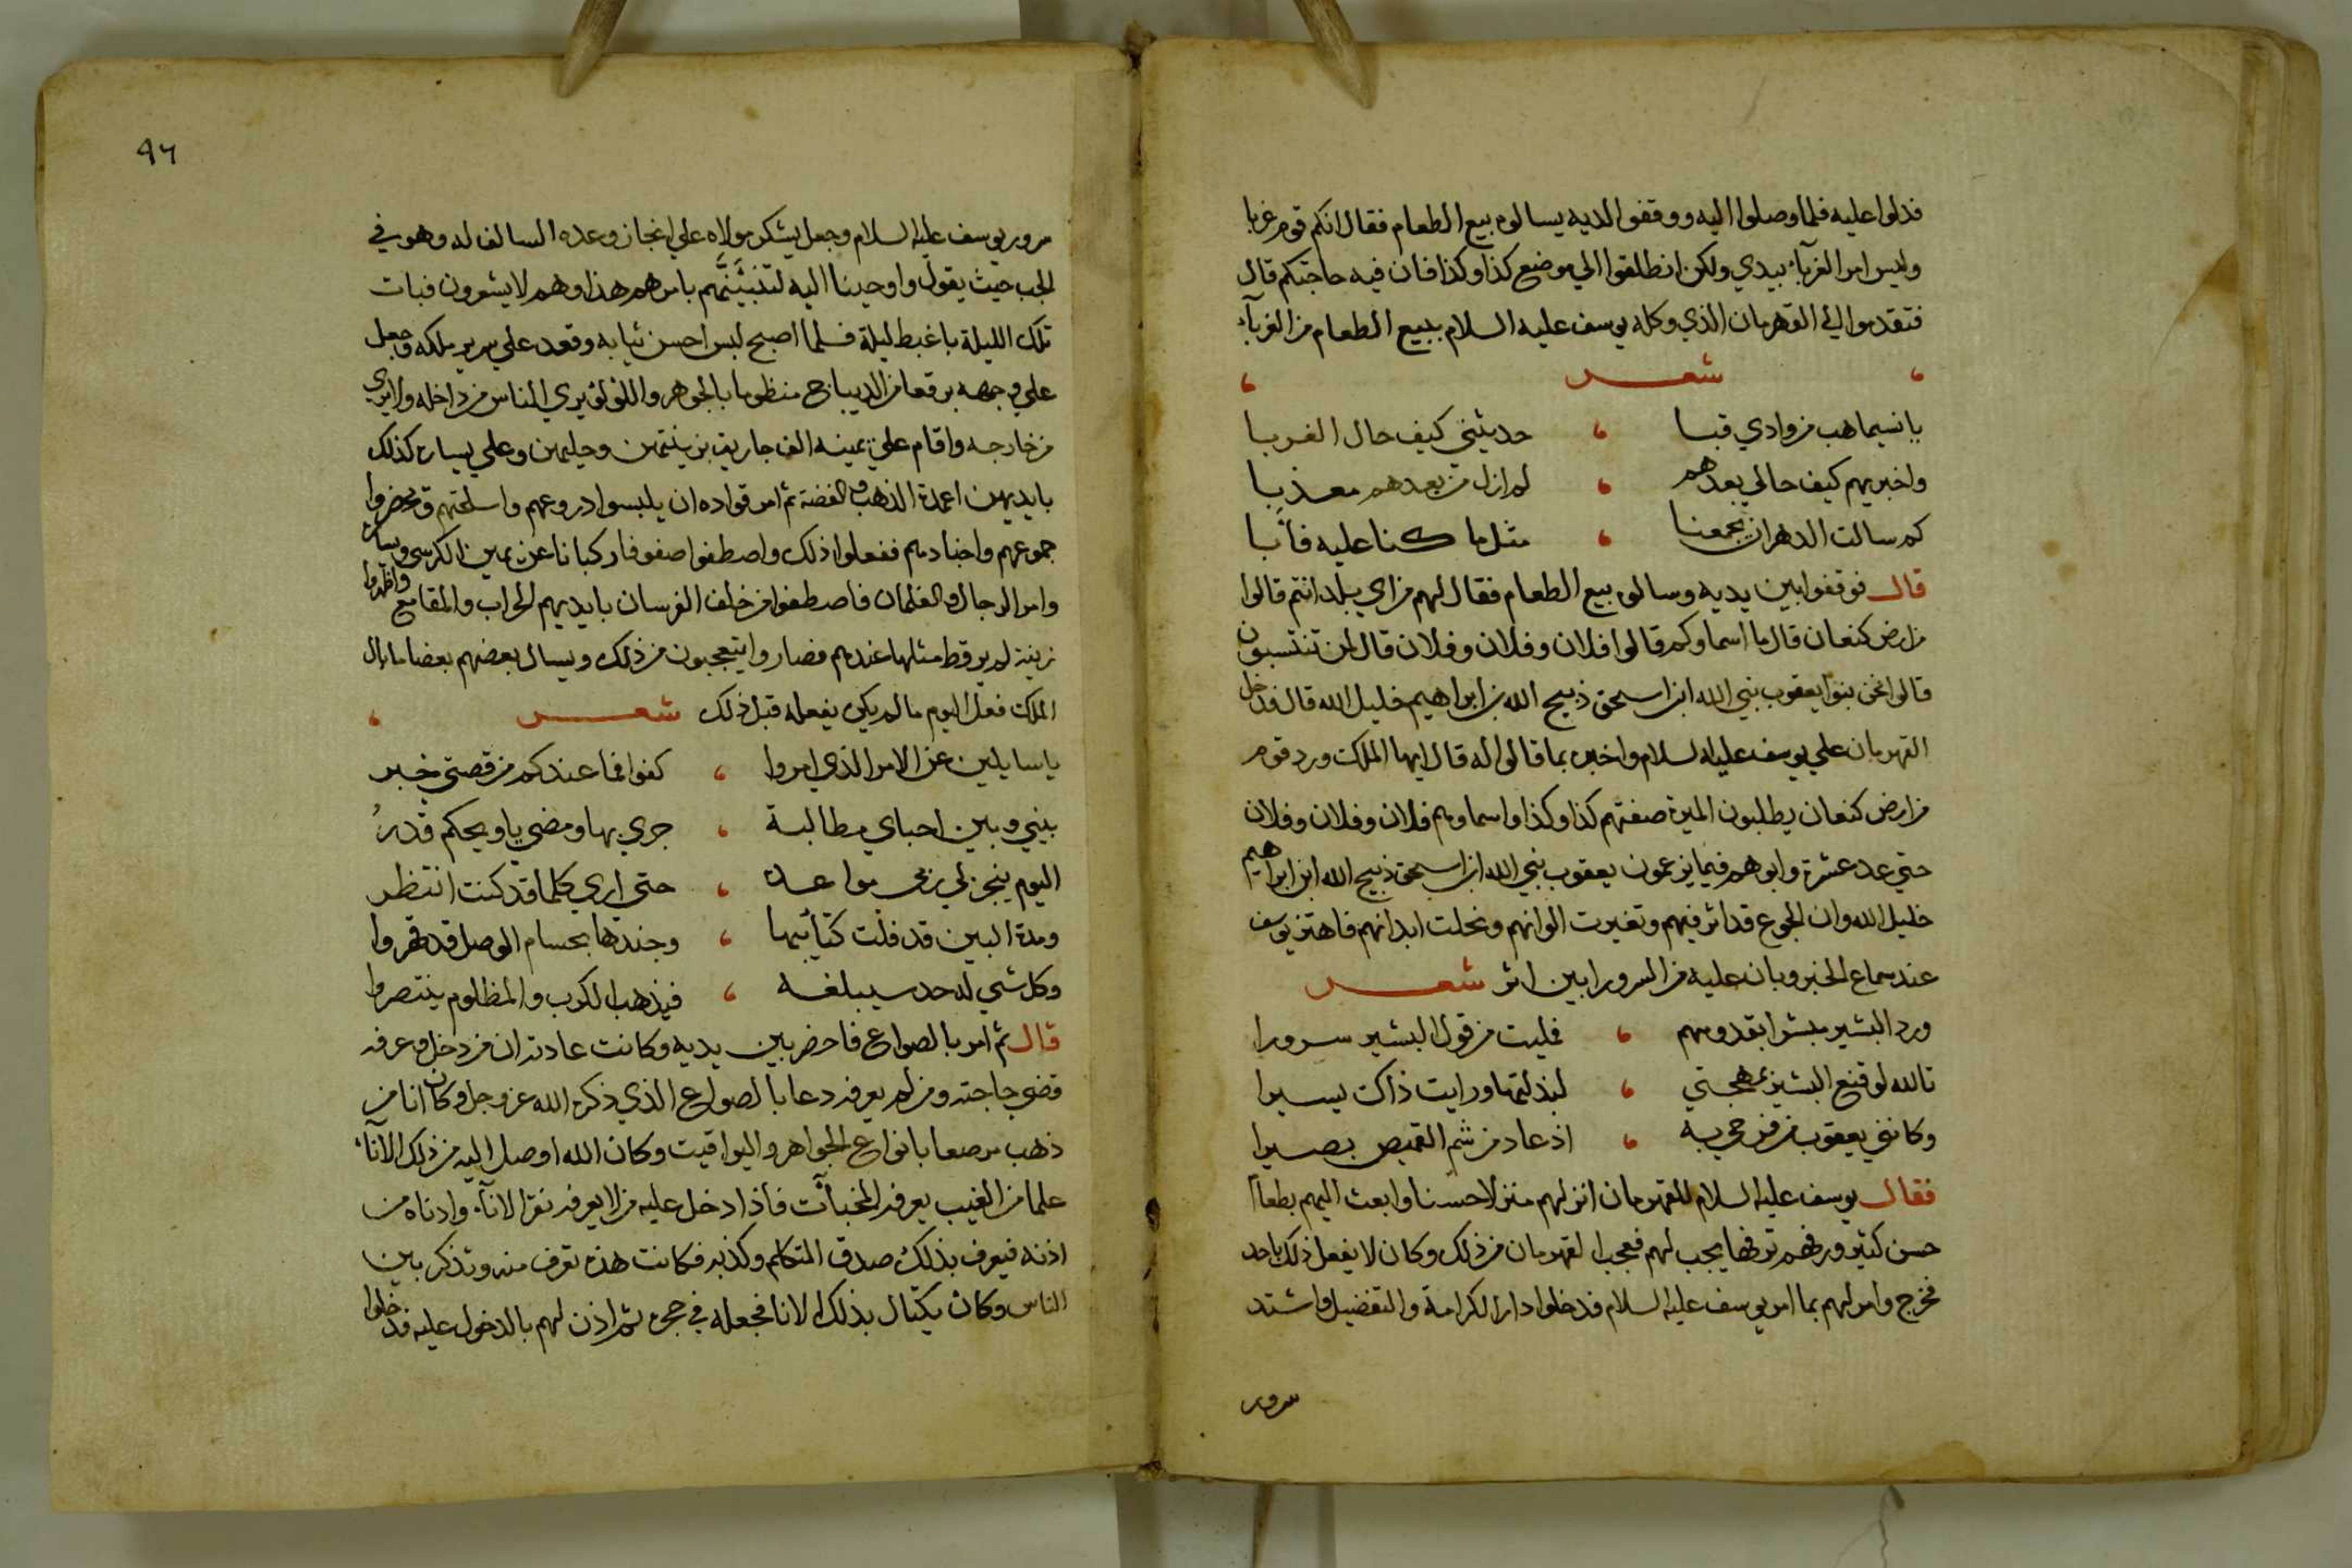 فدلوا عليه فلما وصلوا اليه ووقفوا لديه يسالوه بيع الطعام فقال انكم قوم غربا
وليس امر الغرباء بيدي ولكن انطلقوا الي موضع كذا وكذا فان فيه حاجتكم قال
فتقدموا الي القهرمان الذي وكله يوسف عليه السلام ببيع الطعام من الغرباء
شعر
يا نسيما هب من وادي قبا ، حدثيني كيف حال الغربا
واخبريهم كيف حالي بعدهم ، لم ازل من بعدهم معذبا
كم سالت الدهر ان يجمعنا ، مثل ما كنا عليه فأبا
قال فوقفوا بين يديه وسالوه بيع الطعام فقال لهم من اي بلد انتم قالوا
من ارض كنعان قال ما اسماوكم قالوا فلان وفلان وفلان قال لمن تنتسبون
قالوا نحن بنوا يعقوب نبي الله ابن اسحق ذبيح الله بن ابراهيم خليل الله قال فدخل
القهرمان علي يوسف عليه السلام واخبره بما قالوا له قال ايها الملك ورد قوم
من ارض كنعان يطلبون الميرة صفتهم كذا وكذا واسماوهم فلان وفلان وفلان
حتي عد عشرة وابوهم فيما يزعمون يعقوب نبي الله ابن اسحق ذبيح الله ابن ابراهيم
خليل الله وان الجوع قد اثر فيهم وتغيرت الوانهم ونحلت ابدانهم فاهتز يوسف
عند سماع الخبر وبان عليه من السرور ابين اثر شعر
ورد البشير مبشرا بقدومهم ، فمليت من قول البشير سرورا
تالله لو قنع البشير بمهجتي ، لبذلتها ورايت ذاك يسيرا
وكانني يعقوب من فرحي به ، اذ عاد من شم القميص بصيرا
فقال يوسف عليه السلام للقهرمان انزلهم منزلا حسنا وابعث اليهم بطعام
حسن كثير ورفهم ترفها يجب لهم فعجب القهرمان من ذلك وكان لا يفعل ذلك باحد
فخرج وامر لهم بما امر يوسف عليه السلام فدخلوا دار الكرامة والتفضيل واشتد
سرور
٩٦
سرور يوسف عليه السلام وجعل يشكر مولاه علي انجاز وعده السالف له وهو في
الجب حيث يقول واوحينا اليه لتنبئنهم بامرهم هذا وهم لا يشعرون فبات
تلك الليلة باغبط ليلة فلما اصبح لبس احسن ثيابه وقعد علي سرير ملكه وجعل
علي وجهه برقعا من الديباج منظوما بالجوهر واللؤلؤ يري الناس من داخله ولا يري
من خارجه واقام علي يمينه الف جارية بزينتهن وحليهن وعلي يساره كذلك
بايديهن اعمدة الذهب والفضة ثم امر قواده ان يلبسوا دروعهم واسلحتهم ويحضروا
جموعهم واجنادهم ففعلوا ذلك واصطفوا صفوفا ركبانا عن يمين الكرسي ويساره
وامر الرجال والغلمان فاصطفوا من خلف الفرسان بايديهم الحراب والمقامع واظهروا
زينة لم ير قط مثلها عندهم فصاروا يتعجبون من ذلك ويسال بعضهم بعضا ما بال
الملك فعل اليوم ما لم يكن يفعله قبل ذلك شعر
يا سايلين عن الامر الذي امروا ، كفوا فما عندكم من قصتي خبر
بيني وبين احباي مطالبة ، جري بها ومضي يا ويحكم قدر
اليوم ينجز لي ربي مواعده ، حتي اري كلما قد كنت انتظر
ومدة البين قد فلت كتائبها ، وجندها بحسام الوصل قد قهروا
وكل شي له حد سيبلغه ، فيذهب الكرب والمظلوم ينتصروا
قال ثم امر بالصواع فاحضر بين يديه وكانت عادته ان من دخل وعرفه
قضي حاجته ومن لم يعرفه دعا بالصواع الذي ذكره الله عز وجل وكان انا من
ذهب مرصعا بانواع الجواهر واليواقيت وكان الله اوصل اليه من ذلك الاناء
علما من الغيب يعرفه المخبآت فاذا دخل عليه من لا يعرفه نقر الاناء وادناه من
اذنه فيعرف بذلك صدق المتكلم وكذبه فكانت هذه تعرف منه وتذكر بين
الناس وكان يكتال بذلك الانا فجعله في حجره ثم اذن لهم بالدخول عليه فدخلوا